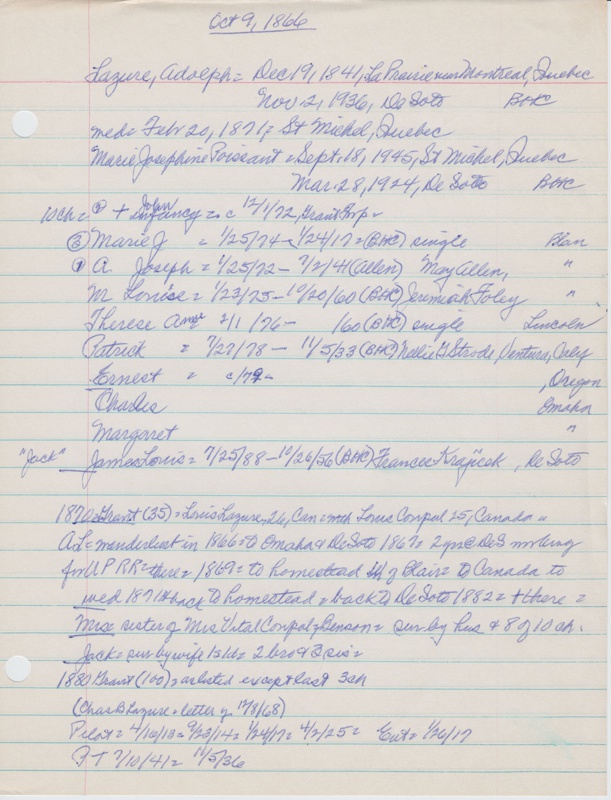 Oct 9, 1866
Lazure, Adolph = Dec 19, 1841, La Prairie near Montreal, Quebec
Nov. 2, 1936, De Soto BHC
med = Feb 20, 1871, St Michel, Quebec
Marie Josephine Poissant = Sept. 18, 1945, St Michel, Quebec
Mar. 28, 1924, De Soto BHC
10 ch = + John infancy = c 12/1/72, Grant
② Marie J = 1/25/74 - 1/24/17 = (BHC) single Blair
① A. Joseph = 1/25/72 - 7/2/41 (Allen) May Allen, "
M Louise = 1/23/75 - 10/20/60 (BHC) Jeremiah Foley "
Therese 11/76 - /60 (BHC) single Lincoln
Patrick = 7/27/78 - 11/5/33 (BHC) Nellie G Strode, Ventura, Calif
Ernest = c/79 - , Oregon
Charles Omaha
Margaret "
"Jack" James Louis = 7/25/88 - 10/26/56 (BHC) Frances Krajicek, De Soto
1870 Grant (35) = Louis Lazure, 26, Can = with Louis Conpal 25, Canada "
AL = wanderlust in 1866 = to Omaha & De Soto 1867 = 2 yrs @ DeS working
for UPRR = there = 1869 = to homestead of Blair = to Canada to
wed 1871 & back to homestead = back to De Soto 1882 = + there =
Mrs = sister of Mrs Vital Conpal of Benson = sur by hus & 8 of 10 ch.
Jack = sur by wife = 2 bro & 3 sis =
1880 Grant (100) = as listed except last 3 ch
(Chas B Lazure = letter of 12/8/68)
Pilot = 4/10/13 = 9/23/14 = 1/24/17 = 4/2/25 = Ent = 1/26/17
7/10/41 = 11/5/36